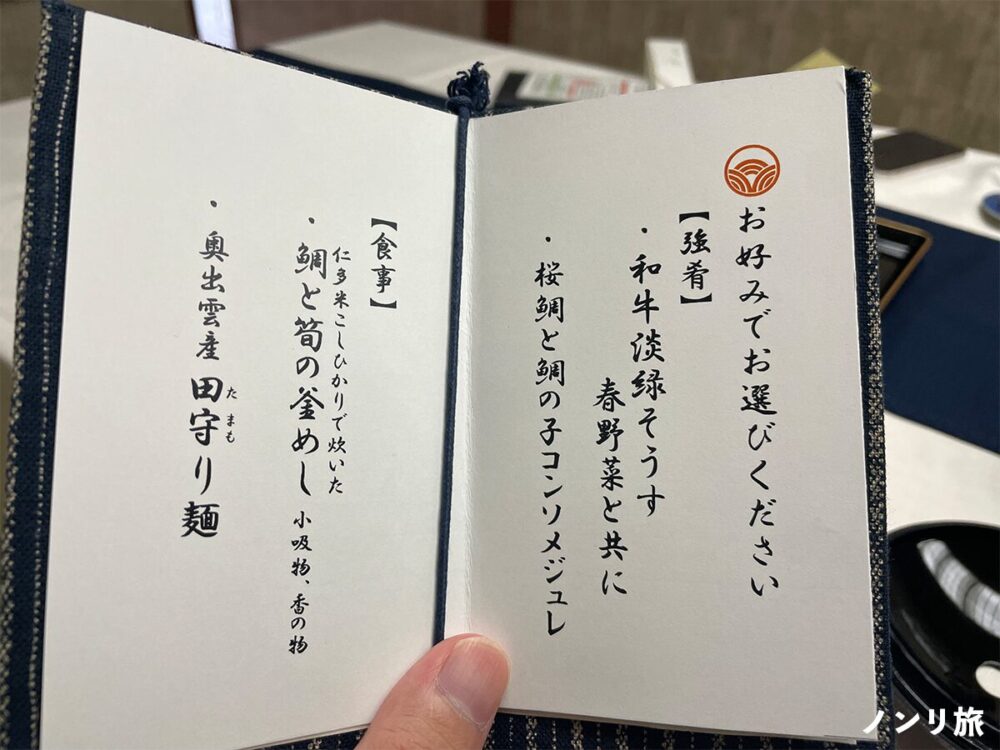 お好みでお選びください
【強肴】
・和牛淡緑そうす
春野菜と共に
・桜鯛と鯛の子コンソメジュレ
【食事】
仁多米こしひかりで炊いた
・鯛と筍の釜めし 小吸物、香の物
・奥出雲産 田守り麺
たまも
ノンリ旅